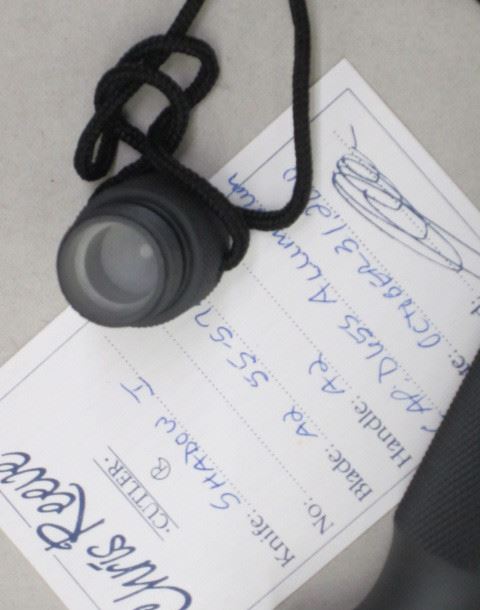 Chris Reeve
CUTLER
Knife: SHADOW I
No: 
Blade: A2 55-57
Handle: A2
CAP D455 ALUMINUM
OCTOBER 31 20